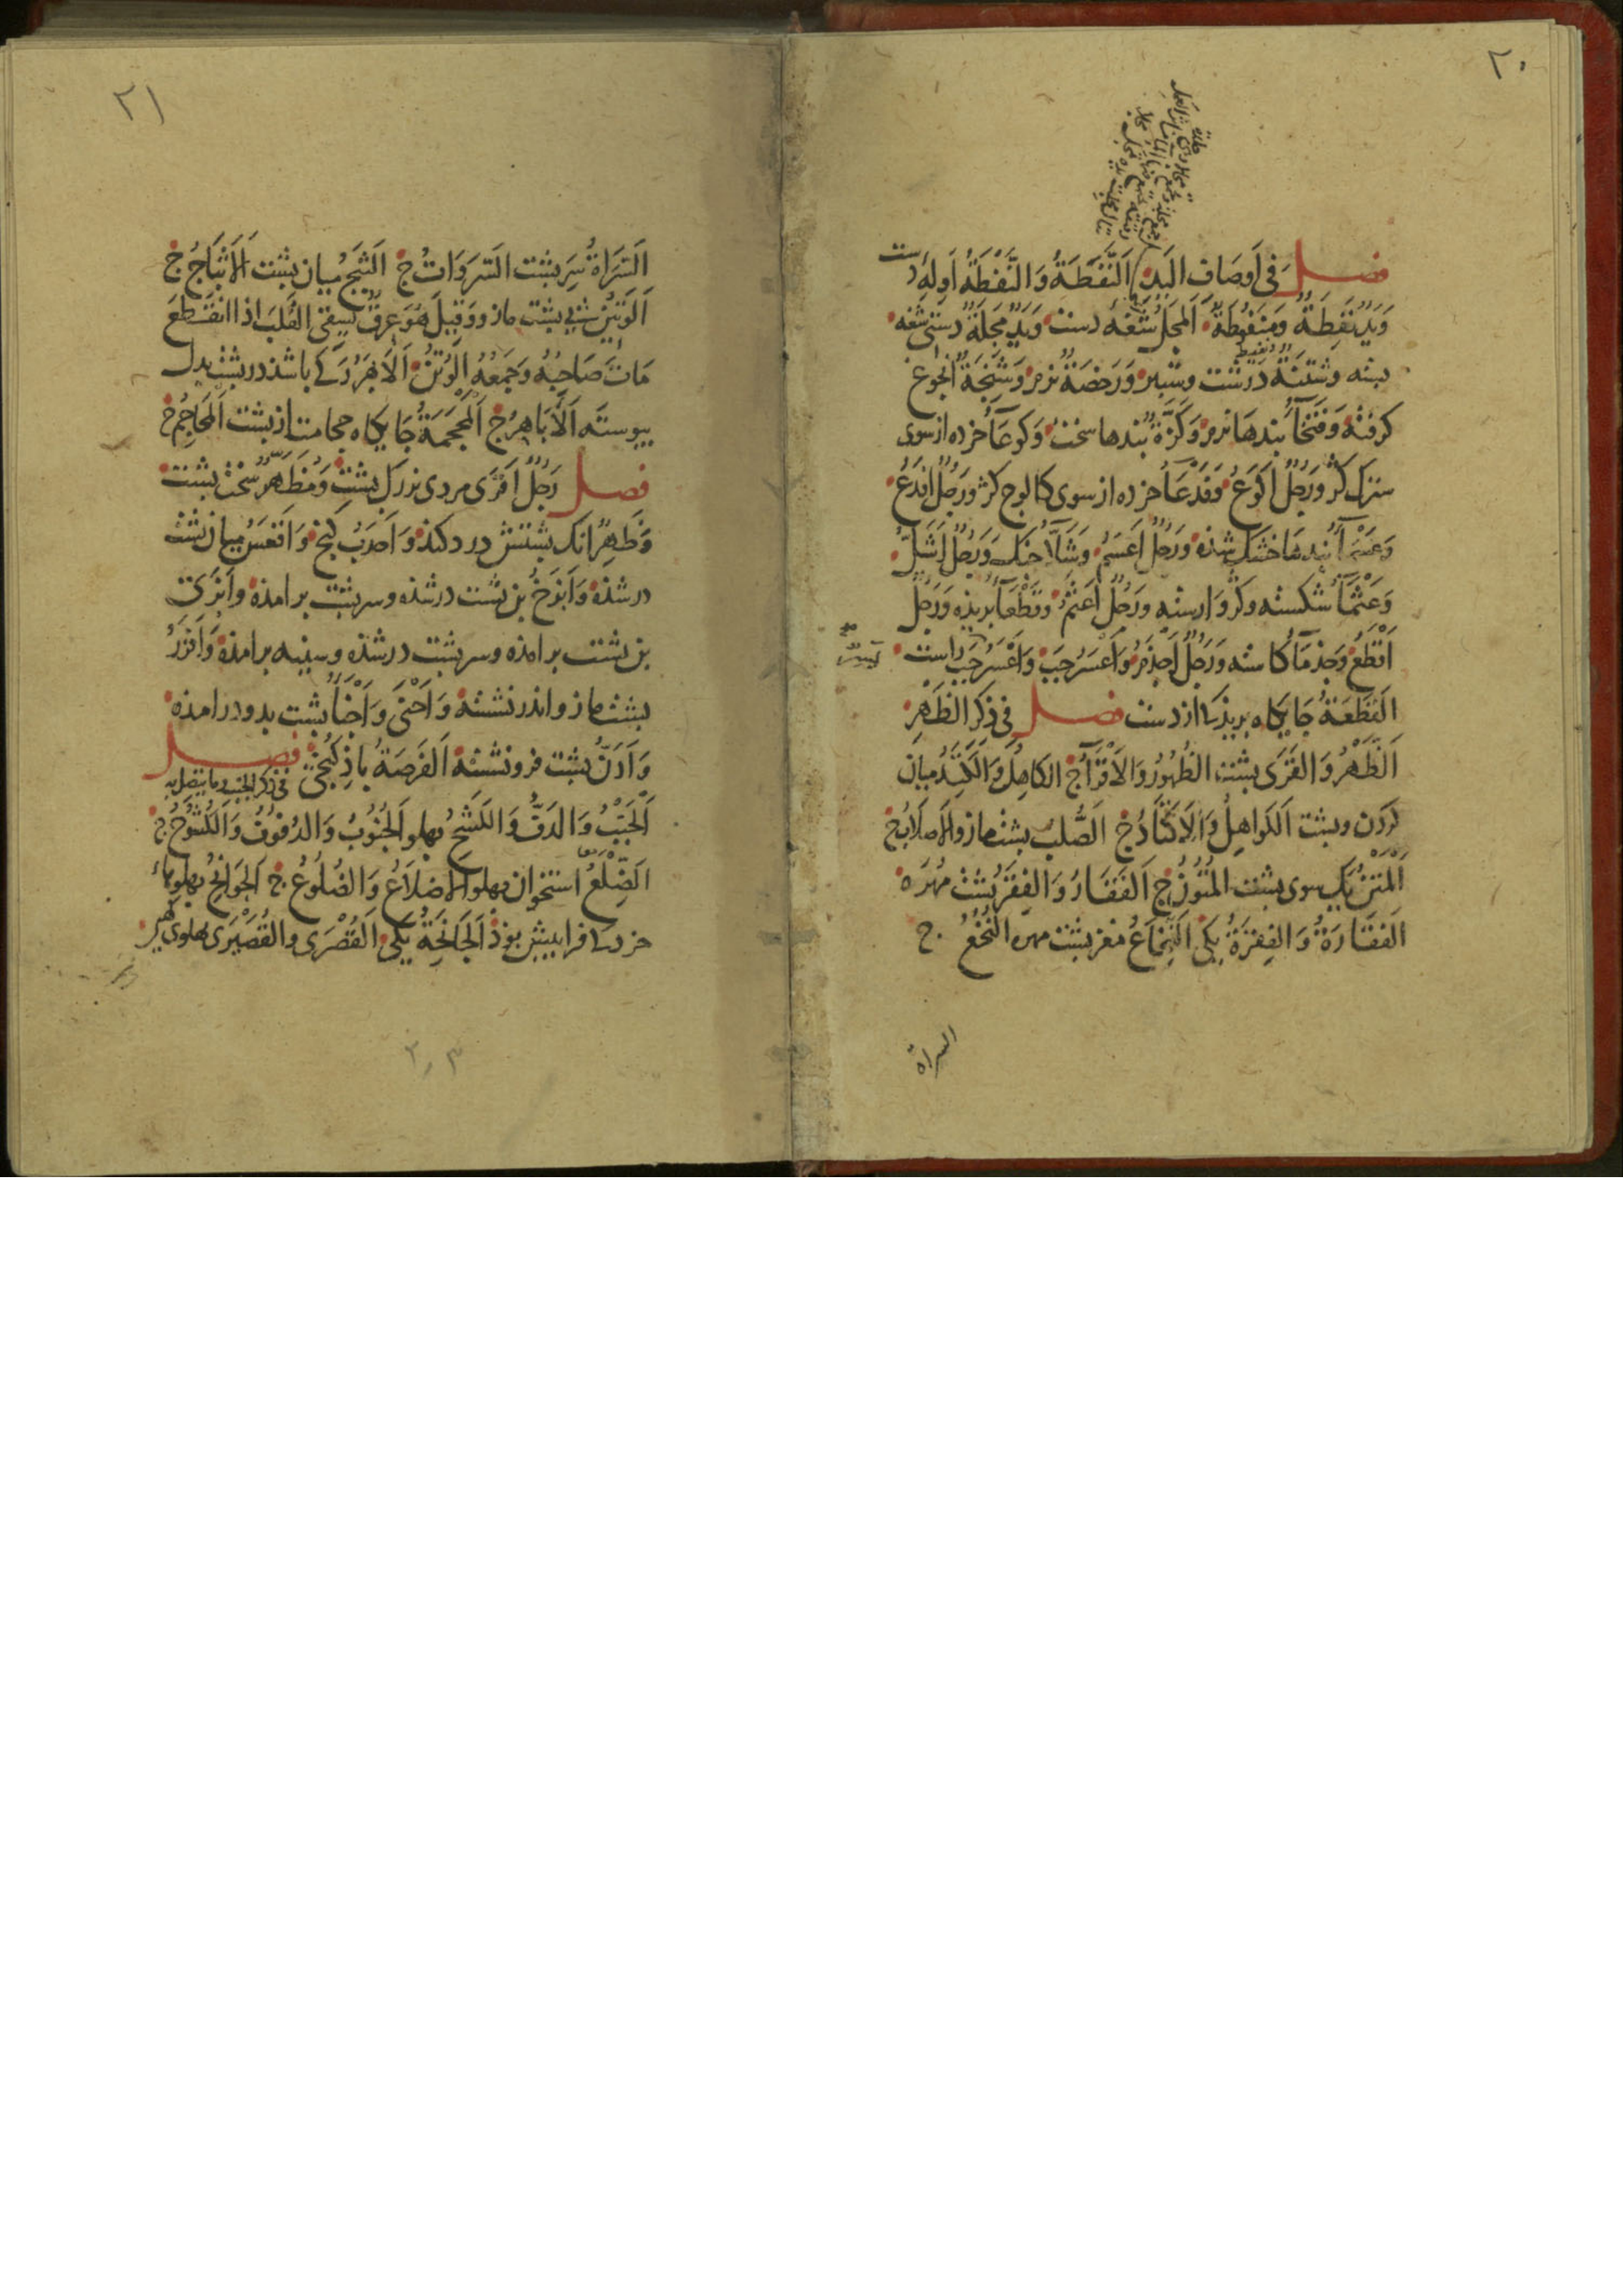 ٢٠
فصل فی اَوصَافِ الیَدِ اَلنَّفَطَةُ وَالنَّفْطَةُ اَوله دست
وَیَدٌ نَفِطَةٌ وَمَنفُوطَةٌ اَلمَجلُ شَغَهٔ دست وَیَدٌ مَجِلَةٌ دستی شغه
ببسته وَشَثنَةٌ درشت وستبر وَرَخصَةٌ نرم وَشَنِجَةٌ انجوغ
کرفته وَفَتخَآءُ بندهَا نرم وَکَزَّةٌ بندها سخت وَکَوعَآءُ خرده از سوی
سترک کژ وَرَجُلٌ اَکوَعُ وَفَدعَآءُ خرده از سوی کالوج کژ وَرَجُلٌ اَفدَعُ
وَعَسمَآءُ بندها خشک شده وَرَجُلٌ اَعسَمُ وَشَلَّآءُ خشک وَرَجُلٌ اَشَلُّ
وَعَثمَآءُ شکسته وکژ وارسته وَرَجُلٌ اَعثَمُ وَقَطعَآءُ بریذه وَرَجُلٌ
اَقطَعُ وَجَذمَآءُ کاسته وَرَجُلٌ اَجذَمُ وَاَعسَرُ چپ وَاَعسَرُ چپ راست
اَلقَطَعَةُ جَایکاه بریذکی از دست فصل فی ذِکرِ الظَّهرِ
اَلظَّهرُ وَالقَرَی پشت الظُّهُورُ وَالاَقرَآءُ ج الکاهِلُ وَالکَتَدُ میان
کردن وپشت اَلکَوَاهِلُ وَالاَکتَادُ ج اَلصُّلبُ پشت مازو الاَصلَابُ ج
اَلمَتنُ یک سوی پشت المُتُونُ ج اَلفَقَارُ وَالفِقَرُ پشت مُهرَه
اَلفَقَارَةُ وَالفِقرَةُ یکی اَلنُّخَاعُ مغز پشت مهره النُّخُعُ ج
السراة
٢١
اَلسَّرَاةُ سرِ پشت السَّرَوَاتُ ج اَلثَّبَجُ میان پشت اَلاَثبَاجُ ج
اَلوَتِینُ شبی پشت مازو وَقِیلَ هُوَ عِرقٌ یَسقِی القَلبَ اذا انقَطَعَ
مَاتَ صَاحِبُهُ وَجَمعُهُ الوُتُنُ اَلاَبهَرُ رکی باشذ در پشت بدل
پیوسته اَلاَبَاهِرُ ج اَلمَحجَمَةُ جَایکاه حجامت از پشت اَلمَحَاجِمُ ج
فصل رَجُلٌ اَقرَی مردی بزرک پشت وَمُظَهَّرٌ سخت پشت
وَظَهِرٌ انک پشتش درد کند وَاَحدَبُ کنج وَاَقعَسُ میان پشت
درشذه وَاَبزَخُ بن پشت درشذه وسر پشت برامذه واَبزَی
بن پشت برامذه وسر پشت درشذه وسینه برامذه وَاَفزَرُ
پشت مازو اندر نشسته وَاَحنَی وَاَجنَأُ پشت بدو درامذه
وَاَدَنُّ پشت فرو نشسته اَلفَرصَةُ باذ کنجی فصل فی ذکر الجنب وما یتصل به
اَلجَنبُ وَالدَفُّ وَالکَشحُ پهلو اَلجُنُوبُ وَالدُفُوفُ وَالکُشُوحُ ج
اَلضِّلعُ استخوان پهلو الاَضلَاعُ وَالضُلُوعُ ج اَلجَوَانِحُ پهلوهاء
خرد کی فرا پیش بوذ اَلجَانِحَةُ یکی اَلقُصرَی والقُصَیرَی پهلوی
٢٫٣